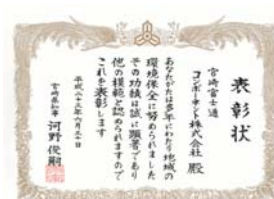 表彰状
宮崎富士通
コンポーネント株式会社 殿
あなたがたは多年にわたり地域の
環境保全に努められました
その功績は誠に顕著であり
他の模範と認められますので
これを表彰します
平成二十三年六月三十日
宮崎県知事 河野俊嗣